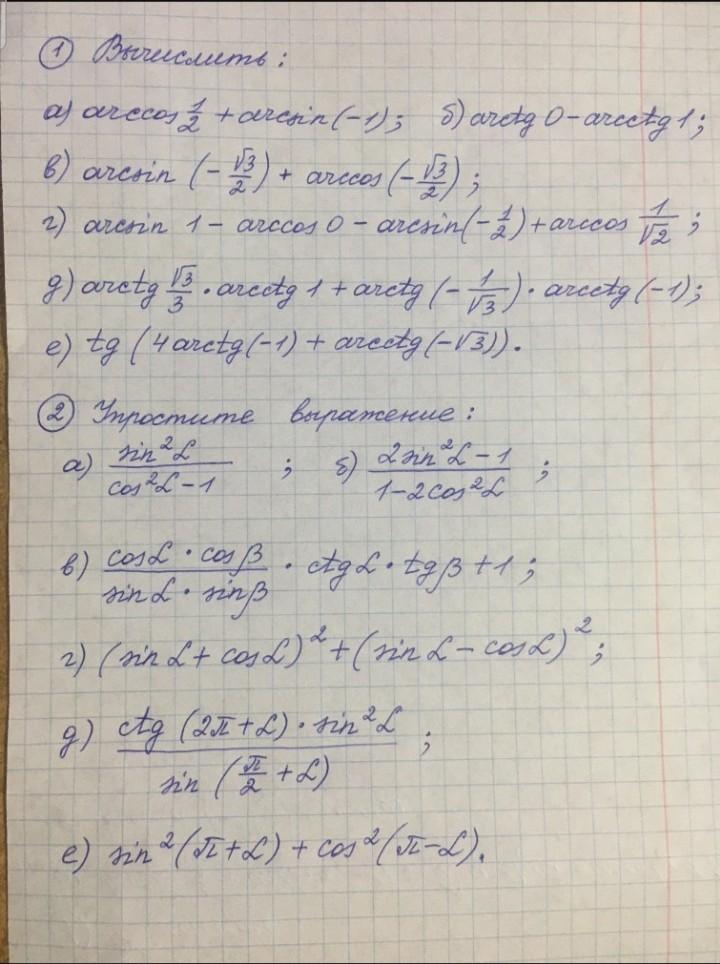 ① Вычислить:
а) arccos 1/2 + arcsin(-1); б) arctg 0 - arcctg 1;
в) arcsin (-√3/2) + arccos(-√3/2);
г) arcsin 1 - arccos 0 - arcsin(-1/2) + arccos 1/√2;
д) arctg √3/3 · arcctg 1 + arctg (-1/√3) · arcctg (-1);
е) tg (4arctg(-1) + arcctg(-√3)).
② Упростите выражение:
а) sin²α / cos²α - 1 ; б) 2sin²α - 1 / 1 - 2cos²α ;
в) cosα · cosβ / sinα · sinβ · ctgα · tgβ + 1;
г) (sinα + cosα)² + (sinα - cosα)²;
д) ctg (2π + α) · sin²α / sin (π/2 + α) ;
е) sin²(π + α) + cos²(π - α).